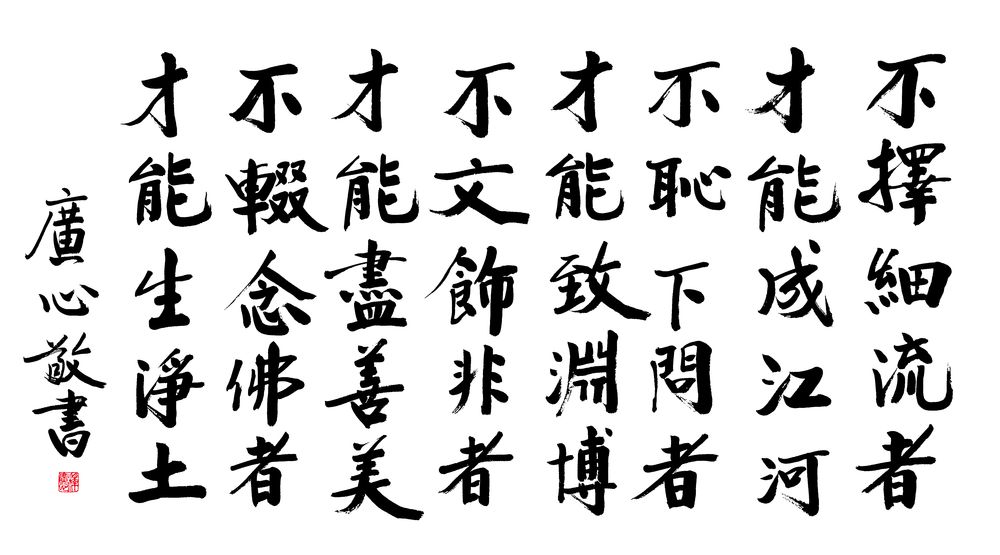 不擇細流者
才能成江河
不恥下問者
才能致淵博
不文飾非者
才能盡善美
不輟念佛者
才能生淨土
廣心敬書